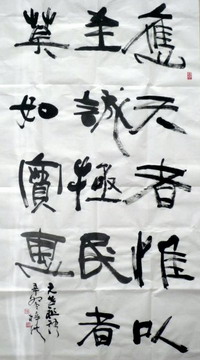 應天者惟以
至誠極民者
莫如實惠